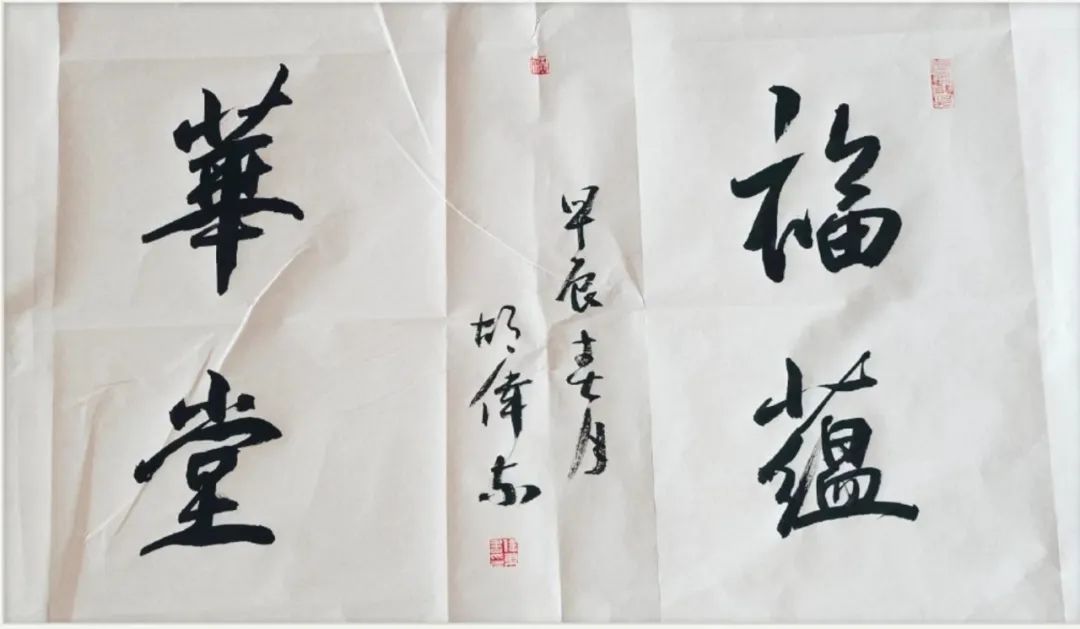 福蘊
甲辰春月
胡偉东
華堂